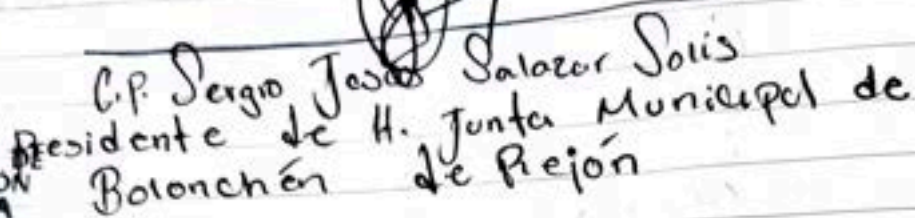 C.P. Sergio Jesús Salazar Solís
Presidente de H. Junta Municipal de
Bolonchén de Rejón